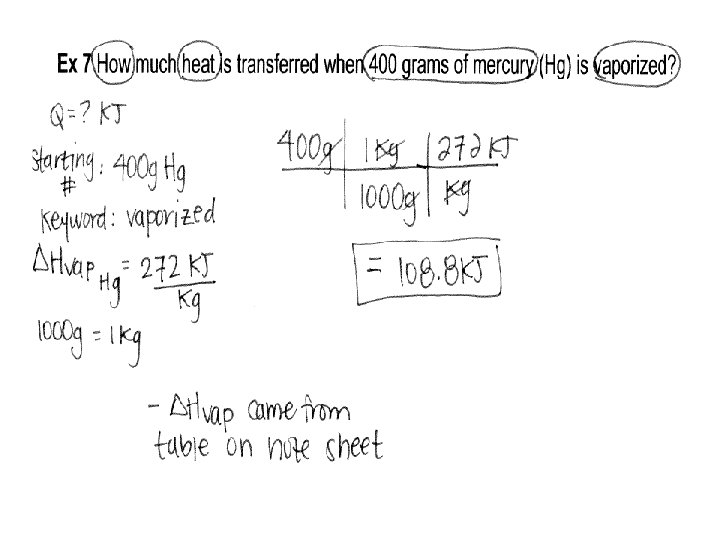 Ex 7 How much heat is transferred when 400 grams of mercury (Hg) is vaporized?
Q = ? KJ
Starting #: 400g Hg
Keyword: vaporized
ΔHvap Hg = 272 KJ
Kg
1000g = 1Kg
400g | 1Kg | 272 KJ
1000g | Kg
= 108.8KJ
- ΔHvap came from
table on note sheet